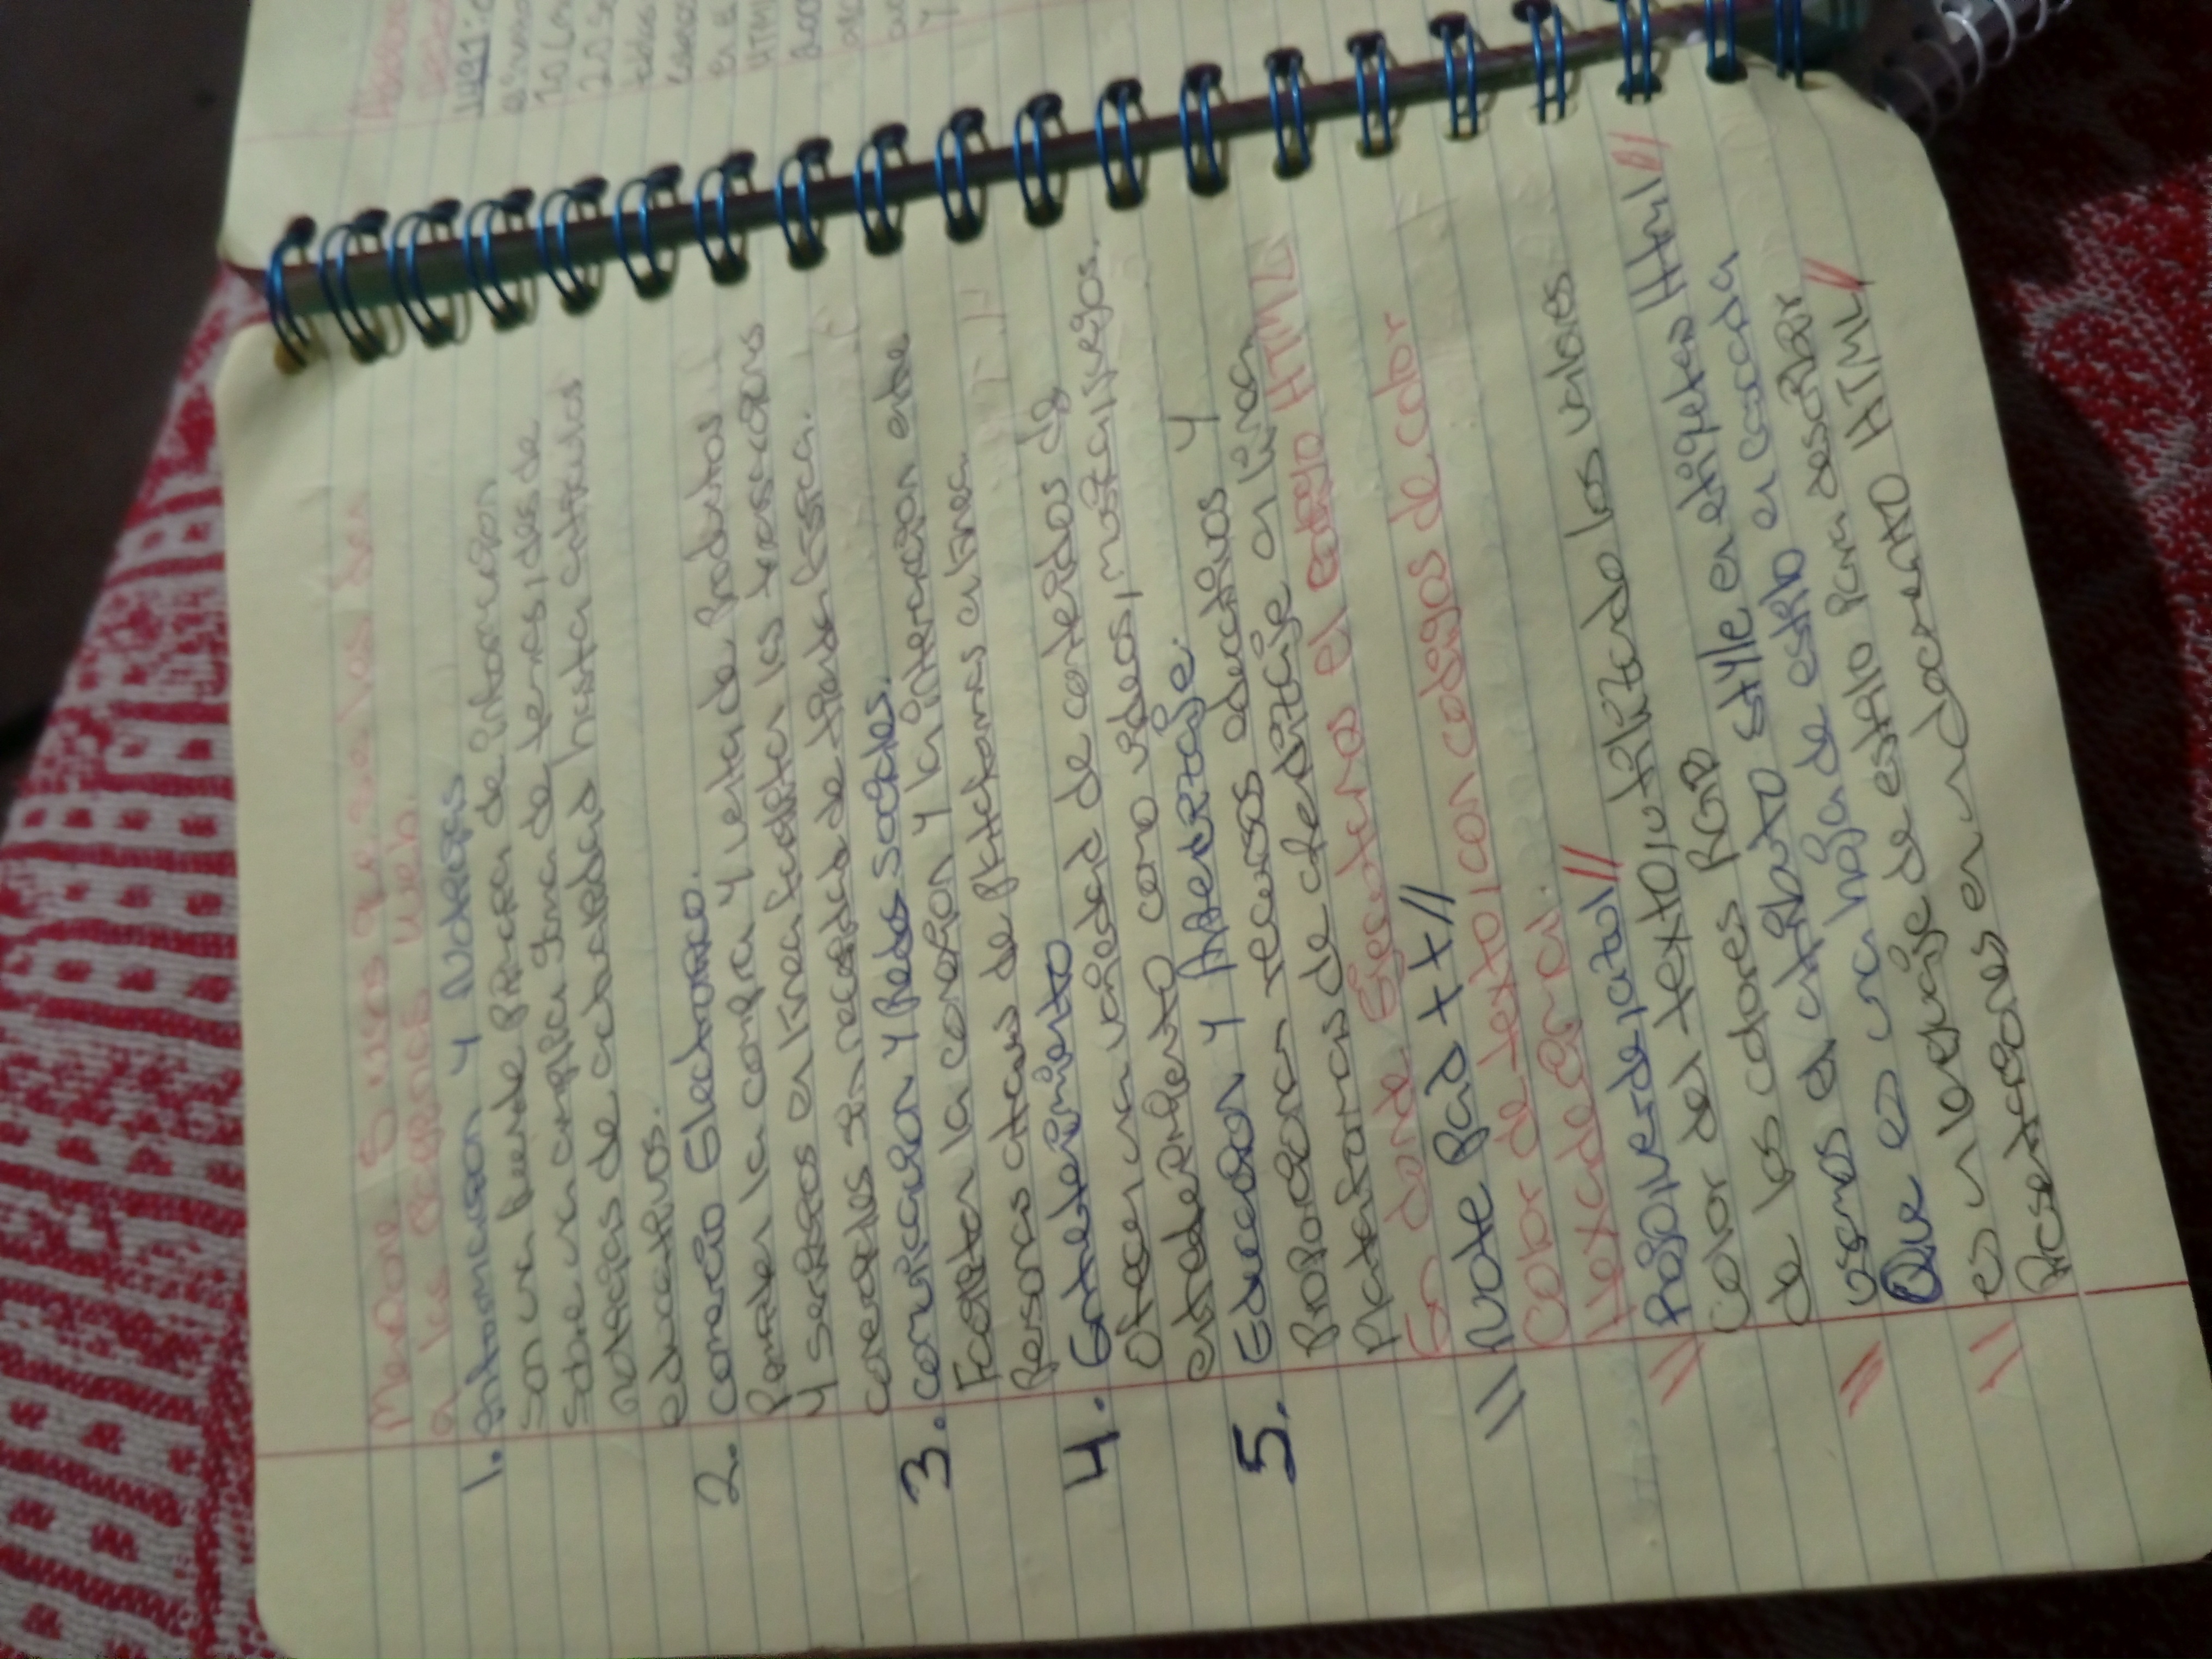 Mencione 5 usos que se les den
a las páginas web.
1. Información y Noticias
Son una fuente primaria de información
sobre una amplia gama de temas, desde
noticias de actualidad hasta artículos
educativos.
2. comercio Electronico.
Permiten la compra y venta de productos
y servicios en línea facilitan las transacciones
comerciales sin necesidad de tienda física.
3. comunicación y Redes Sociales.
Facilitan la conexión y la interacción entre
Personas atraves de plataformas en línea.
4. Entretenimiento
Ofrecen una variedad de contenidos de
entretenimiento como videos, música, juegos.
5. Educación y Aprendizaje:
Proporcionan recursos educativos y
plataformas de aprendizaje en línea
En donde Ejecutamos el codigo HTML
// Note Pad ++//
Color de texto, con codigos de color
Hexadecimal.
Rojo, Verde, azul//
// Color del texto, utilizando los valores
de los colores RGB
usamos el atributo style en etiquetas Html//
// Que es una hoja de estilo en cascada
// es un lenguaje de estilo para describir
Presentaciones en un documento HTML//